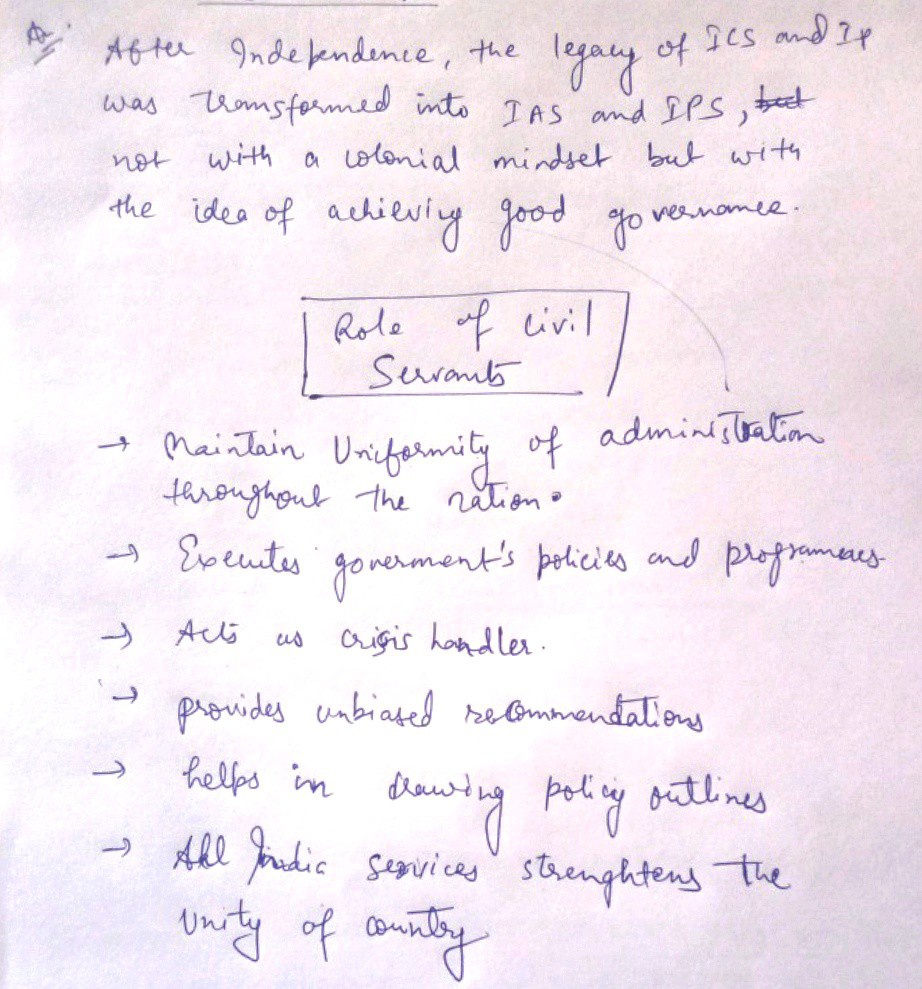 A.
After Independence, the legacy of ICS and IP
was transformed into IAS and IPS, but
not with a colonial mindset but with
the idea of achieving good governance.
Role of Civil
Servants
→ Maintain Uniformity of administration
throughout the nation.
→ Executes goverment's policies and programmes
→ Acts as crisis handler.
→ provides unbiased recommendations
→ helps in drawing policy outlines
→ All India services strenghtens the
Unity of country